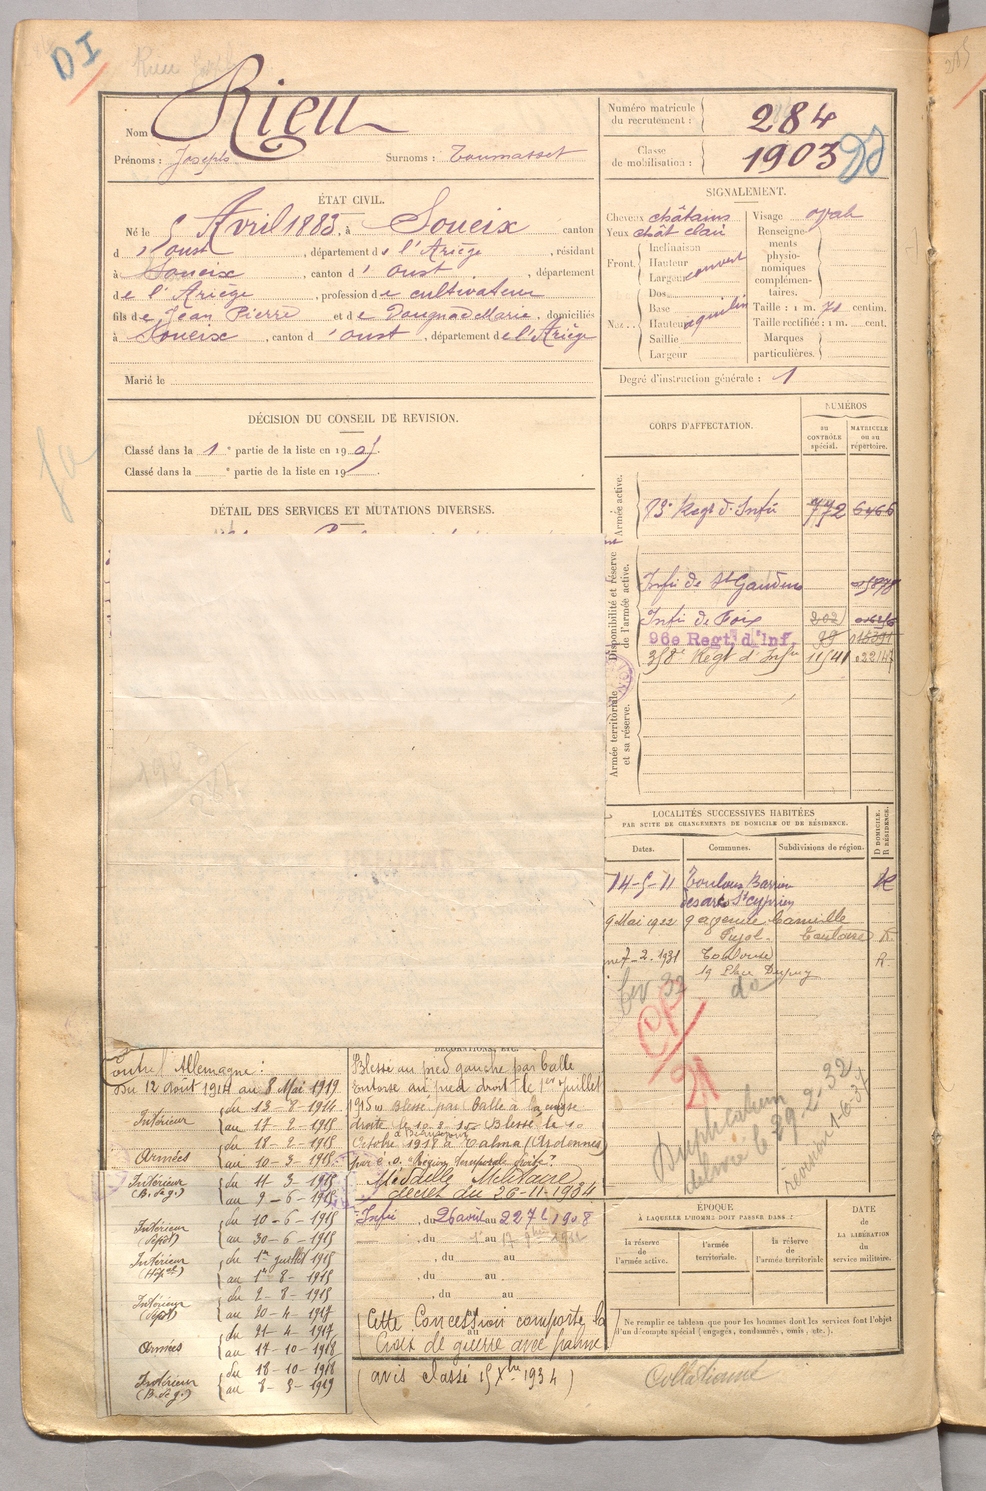 DI
Rieu Joseph
Nom Rieu
Prénoms : Joseph Surnoms : Toumasset
Numéro matricule du recrutement : 284
Classe de mobilisation : 1903
ÉTAT CIVIL.
Né le 5 Avril 1883, à Soueix canton
d'oust, département de l'Ariège, résidant
à Soueix, canton d'oust, département
de l'Ariège, profession de cultivateur
fils de Jean Pierre et de Dougnac Marie, domiciliés
à Soueix, canton d'oust, département de l'Ariège
Marié le
SIGNALEMENT.
Cheveux châtains
Yeux chât clair
Front. Inclinaison
Hauteur
Largeur couvert
Nez. Dos
Base
Hauteur aquilin
Saillie
Largeur
Visage oval
Renseignements physionomiques complémentaires.
Taille : 1 m. 70 centim.
Taille rectifiée : 1 m. cent.
Marques particulières.
Degré d'instruction générale : 1
DÉCISION DU CONSEIL DE REVISION.
Classé dans la 1e partie de la liste en 190
Classé dans la e partie de la liste en 19
DÉTAIL DES SERVICES ET MUTATIONS DIVERSES.
CORPS D'AFFECTATION.
NUMÉROS
au CONTRÔLE spécial.
MATRICULE ou au répertoire.
Armée active.
Regt d'Infie 772 6466
Disponibilité et réserve de l'armée active.
Infie de St Gaudens
Infie de Foix 202
96e Regt. d'Inf.
358e Regt d'Infie 11541 03214
Armée territoriale et sa réserve.
LOCALITÉS SUCCESSIVES HABITÉES
PAR SUITE DE CHANGEMENTS DE DOMICILE OU DE RÉSIDENCE.
Dates. Communes. Subdivisions de région. D DOMICILE. R RÉSIDENCE.
14-5-11 Toulouse Barrière
des arcs St Cyprien R
9 Mai 1922 9 avenue Camille
Pujol. Toulouse R.
7-2-1931 Toulouse R
19 Place Dupuy
fev 32 do
CP/21
Duplicatum
délivré le 29-2-32
1-6-37
DÉCORATIONS, ETC.
Contre l'Allemagne :
Du 12 Août 1914 au 8 Mai 1919
Intérieur du 13-8-1914
au 17-2-1915
Armées du 18-2-1915
au 10-3-1915
Intérieur (B. de g.) du 11-3-1915
au 9-6-1915
Intérieur (Dépôt) du 10-6-1915
au 30-6-1915
Intérieur (Hôpal) du 1er juillet 1915
au 1er-8-1915
Intérieur (Dépôt) du 2-8-1915
au 20-4-1917
Armées du 21-4-1917
au 17-10-1918
Intérieur (B. de g.) du 18-10-1918
au 8-5-1919
Blessé au pied gauche par balle
Entorse au pied droit le 1er Juillet
1915 Blessé par Balle à la cuisse
droite le 10-3-15 Blessé le 10
Octobre 1918 à Talma (Ardennes)
par é. o.
Médaille Militaire
décret du 26-11-1934
Infie, du 26 avril au 22 7bre 1908
, du 1er au 17 9bre 1911
, du au
, du au
, du au
Cette Concession comporte la
Croix de guerre avec palme
(avis classé 15 Xbre 1934)
ÉPOQUE
À LAQUELLE L'HOMME DOIT PASSER DANS :
la réserve de l'armée active.
l'armée territoriale.
la réserve de l'armée territoriale
DATE DE LA LIBÉRATION du service militaire.
Ne remplir ce tableau que pour les hommes dont les services font l'objet
d'un décompte spécial (engagés, condamnés, omis, etc.).
Collationné